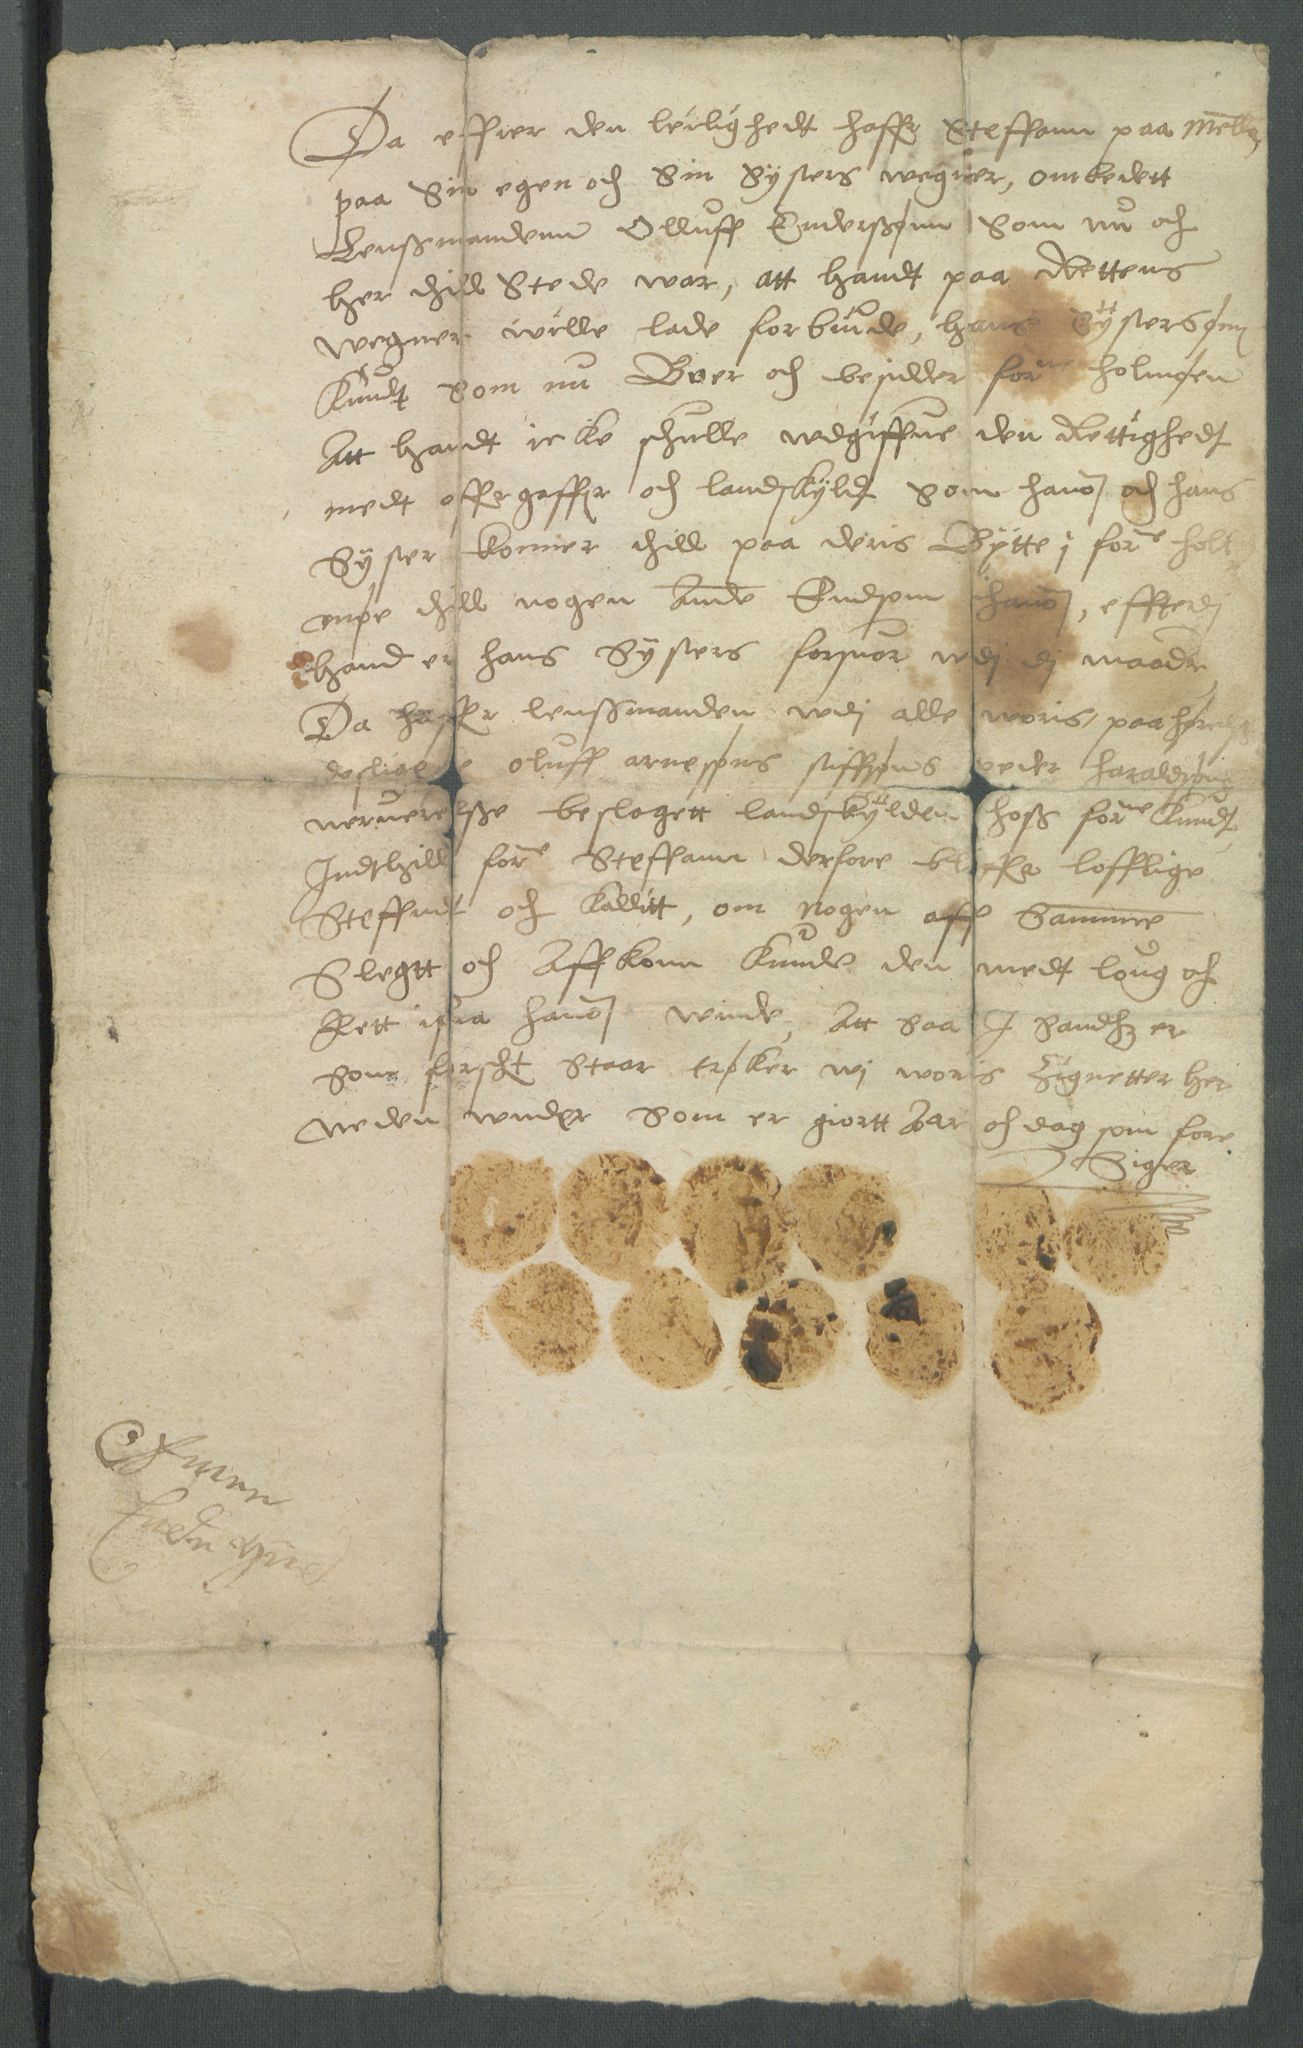 Da effter den leilighedt haffr Steffann paa Mella
paa Sin egen och Sin Systers wegner, ombedett
Lenssmandenn Olluff Enderssønn Som nu och
her thill Stede war, att handt paa Rettens
wegner wille lade forbiude, hans Systersønn
Knudt Som nu Boer och besidder forne holmøen
Att handt icke schulle wdgiffue den Rettighedt
medt offergaffer och landskyldt Som hanom och hans
Syster kommer thill paa deris Bytte i forne holt
till nogen Ande Endsom hanom, effterdj
hand er hans Systers forsuor wdj dj maade
Da haffr lenssmanden wdj alle woris paahørelse
desligeste oluff arnesøns peder haraldsøns
neruerelsse beslagett landskylden hoss forne Knudt
Indthill forne Steffann derfore bliffr loffligе
Steffndt och kalditt, om nogen aff Samme
Slegtt och Affkom kunde den medt loug och
Rett ifra hanom winde, Att saa I Sandhed er
Som forscht Staar trøker wj woris Zignetter her
neden wnder Som er giortt Aar och dag som fore
Siger